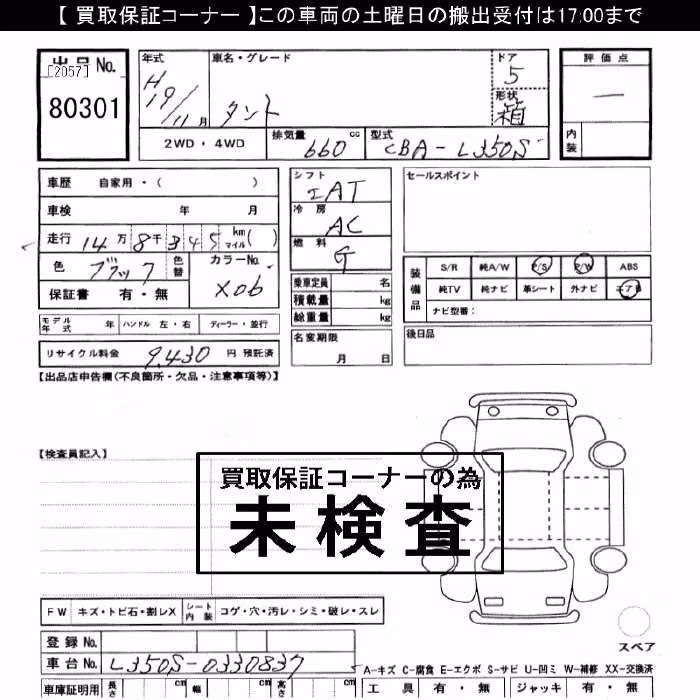 【 買取保証コーナー 】この車両の土曜日の搬出受付は17:00まで
出品 No.
[2057]
80301
年式
H19/11月
車名・グレード
タント
ドア
5
形状
箱
評価点
ー
内装
2WD ・ 4WD
排気量
660 cc
型式
CBA-L350S
車歴 自家用・( )
車検 年 月
走行 14万8千345 km マイル ( )
色 ブラック 色替 カラーNo. X06
保証書 有・無
シフト
IAT
冷房
AC
燃料
G
乗車定員 名
積載量 kg
総重量 kg
セールスポイント
装備品
S/R 純A/W P/S P/W ABS
純TV 純ナビ 革シート 外ナビ エアB
ナビ型番:
モデル年式 年 ハンドル 左・右 ディーラー・並行
リサイクル料金 9,430 円 預託済
名変期限
月 日
後日品
【出品店申告欄(不良箇所・欠品・注意事項等)】
【検査員記入】
買取保証コーナーの為
未検査
FW キズ・トビ石・割レX シート内装 コゲ・穴・汚レ・シミ・破レ・スレ
スペア
登録 No.
車台 No. L350S-0330837
A-キズ C-腐食 E-エクボ S-サビ U-凹ミ W-補修 XX-交換済
車庫証明用 長さ cm 幅 cm 高さ cm
工具 有・無 ジャッキ 有・無